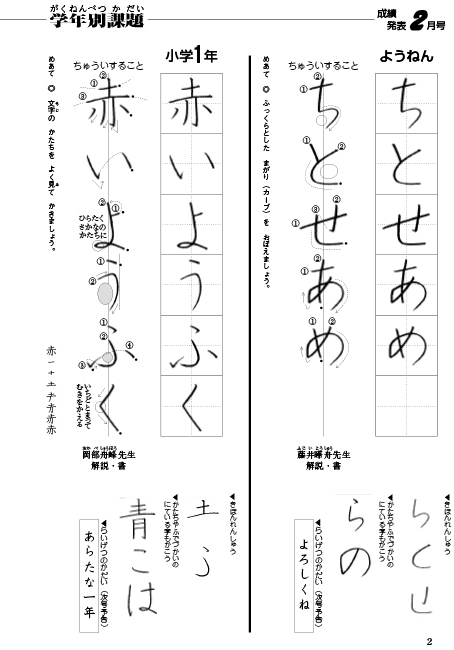 がくねんべつ か だい
学年別課題
成績
発表 2 月号
ようねん
ちとせあめ
ちゅういすること
① ② ちとせあめ
めあて ◎ ふっくらとした まがり（カーブ）を おぼえましょう。
ふじ い とうしゅう
藤井嶂舟先生
解説・書
◀きほんれんしゅう
◀かたちやふでづかいの
にている字もかこう
らの
◀らいげつのかだい（次号予告）
よろしくね
小学1年
赤いようふく
ちゅういすること
赤いようふく
ひらたく
さかなの
かたちに
いちどとまって
むきをかえる
めあて ◎ 文字の かたちを よく見て かきましょう。
岡部舟峰先生
解説・書
◀きほんれんしゅう
土う
◀かたちやふでづかいの
にている字もかこう
青こは
◀らいげつのかだい（次号予告）
あらたな一年
2